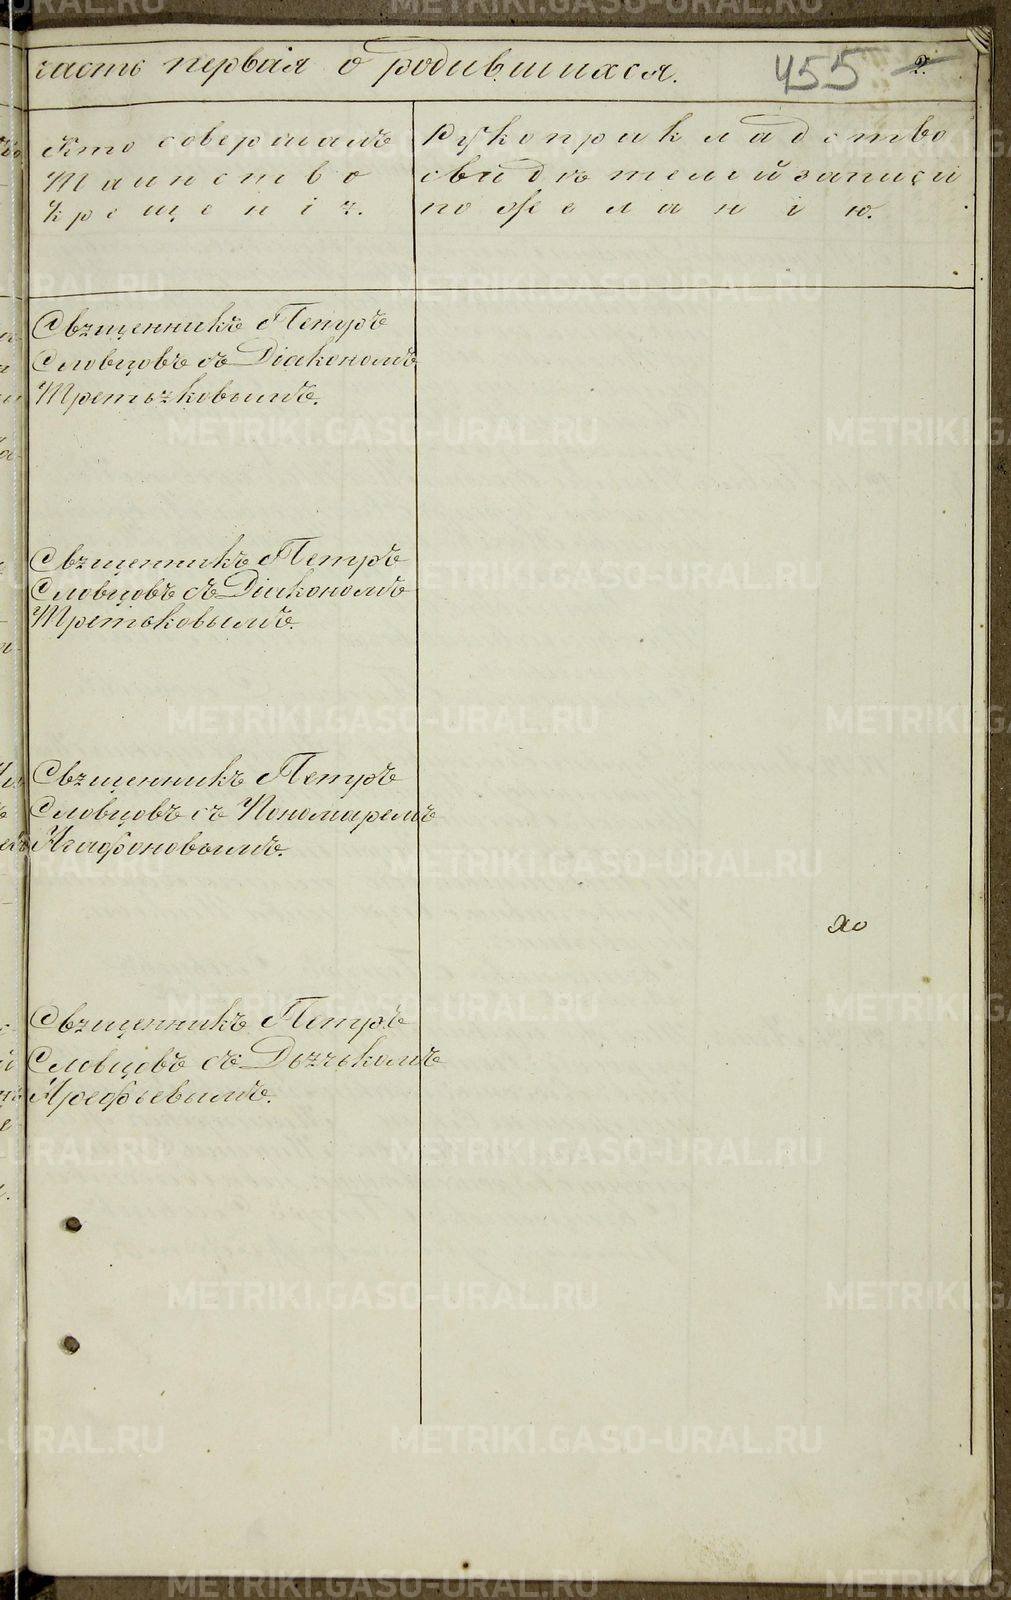 часть первая о родившихся.
455 2.
Кто совершалъ
Таинство
крещенія.
Рукоприкладство
свидѣтелей записи
по желанію.
Священникъ Петръ
Словцовъ съ Діакономъ
Третьяковымъ.
Священникъ Петръ
Словцовъ съ Діакономъ
Третьяковымъ.
Священникъ Петръ
Словцовъ съ Пономаремъ
Агафоновымъ.
Священникъ Петръ
Словцовъ съ Дьячькомъ
Арефьевымъ.
METRIKI.GASO-URAL.RU